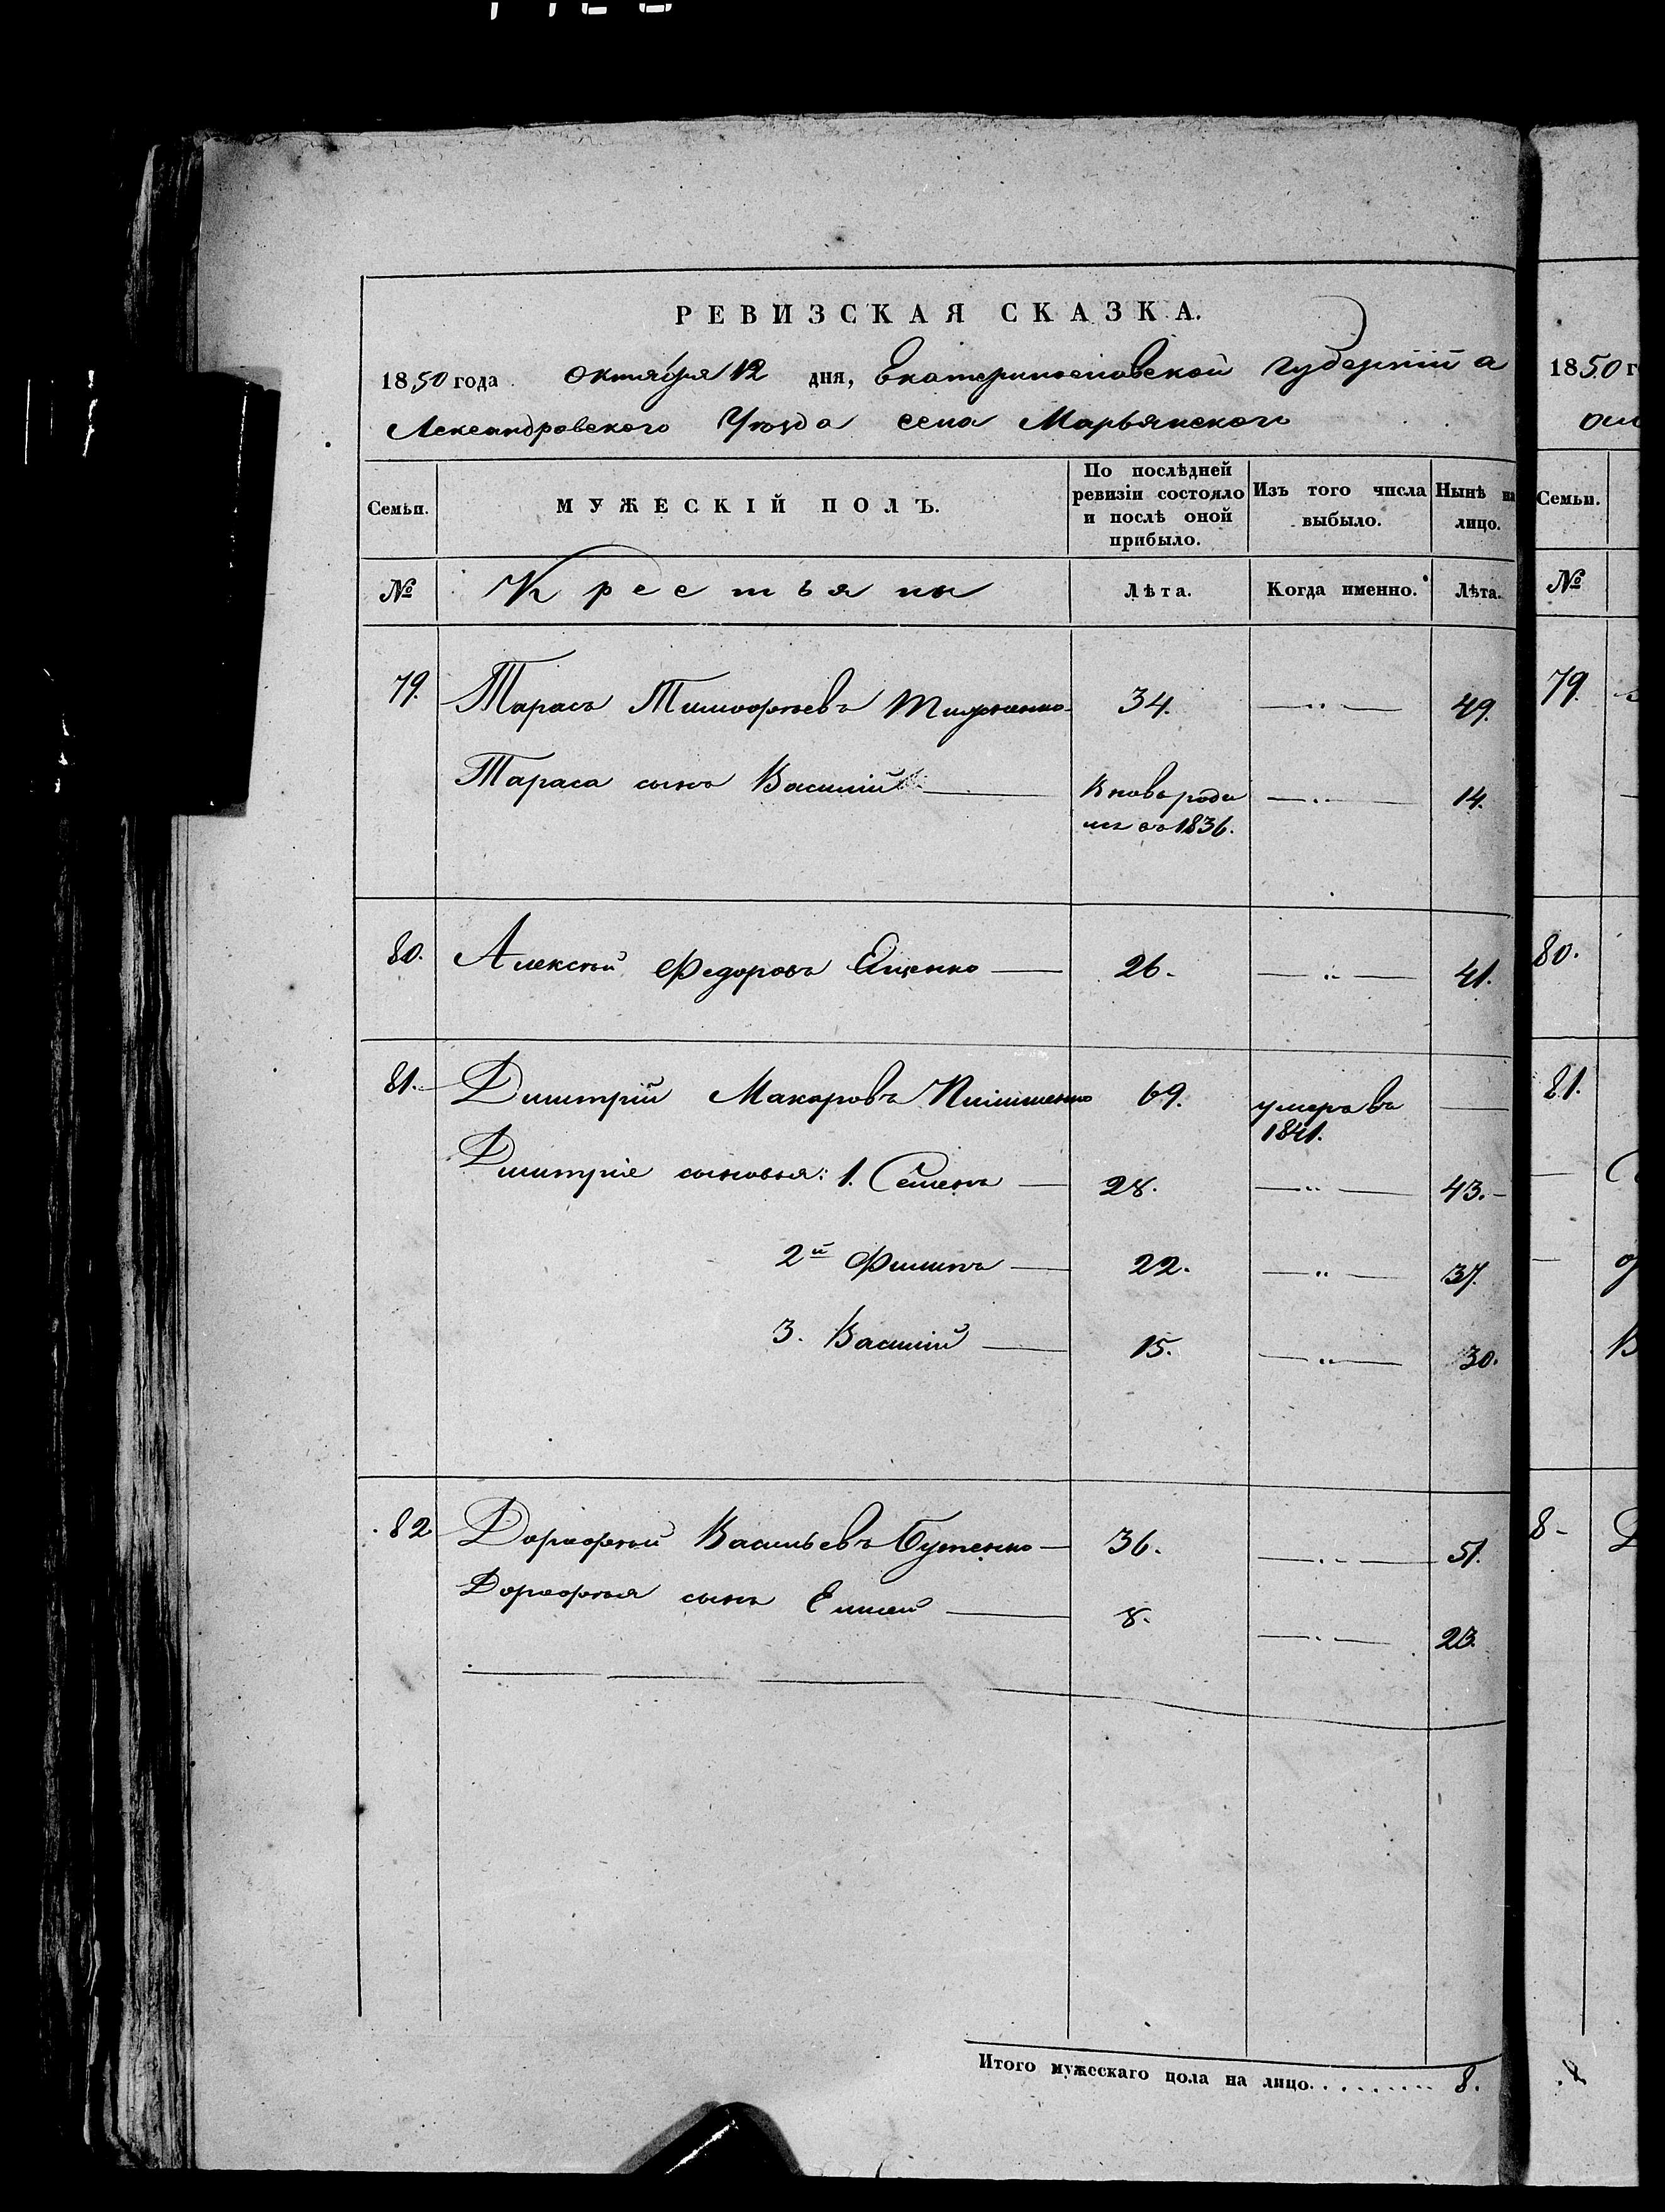 РЕВИЗСКАЯ СКАЗКА.
1850 года октября 12 дня, Екатеринославской губерніи а
лександровского Уѣзда села Марьянского
Семьи.
МУЖЕСКІЙ ПОЛЪ.
По послѣдней ревизіи состояло и послѣ оной прибыло.
Изъ того числа выбыло.
Нынѣ на лицо.
№ Крестьяни Лѣта. Когда именно. Лѣта.
79. Тарасъ Тимофѣевъ 34. —"— 49.
Тараса сынъ Василій — Вновь роди —"— 14.
лся въ 1836.
80. Алексѣй Федоровъ Ещенко — 26. —"— 41.
81. Дмитрій Макаровъ 69. умеръ въ —
1841.
Дмитріе сыновья: 1. Семенъ — 28. —"— 43.
2й Филипъ — 22. —"— 37.
3. Василій — 15. —"— 30.
82 Дорофѣй Васильевъ Бутенко — 36. —"— 51.
Дорофѣя сынъ Елисей — 8. —"— 23.
Итого мужескаго пола на лицо.......... 8.
1850 г
Семьи.
№
79.
80.
81.
8-
8